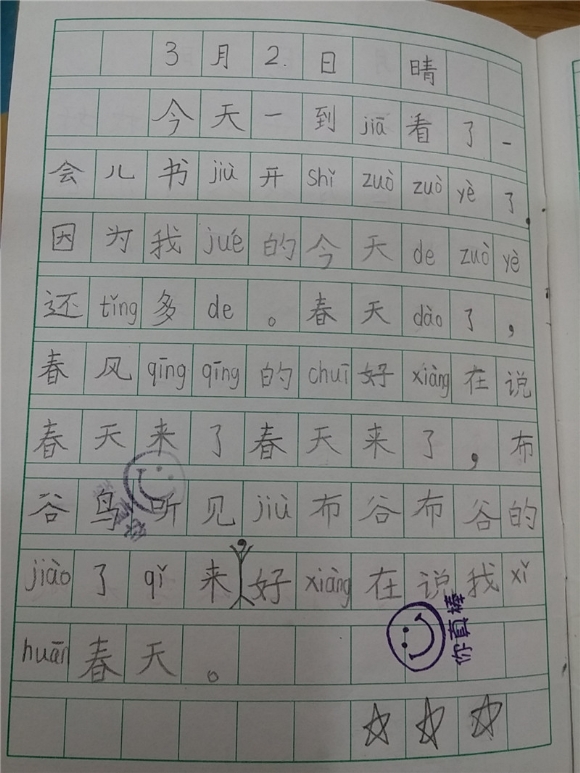 3月2.日 晴
今天一到jiā看了一
会儿书jiù开shǐzuòzuòyè了.
因为我jué的今天dezuòyè
还tǐng多de。春天dào了，
春风qīngqīng的chuī好xiàng在说
春天来了春天来了，布
谷鸟听见jiù布谷布谷的
jiào了qǐ来好xiàng在说我xǐ
huān春天。
你真棒